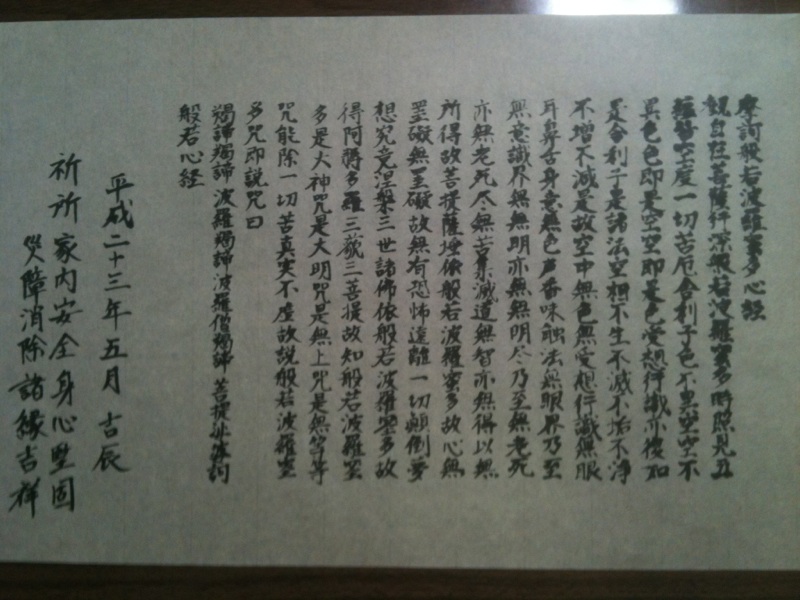 摩訶般若波羅蜜多心経
観自在菩薩行深般若波羅蜜多時照見五
蘊皆空度一切苦厄舎利子色不異空空不
異色色即是空空即是色受想行識亦復如
是舎利子是諸法空相不生不滅不垢不浄
不増不減是故空中無色無受想行識無眼
耳鼻舌身意無色声香味触法無眼界乃至
無意識界無無明亦無無明尽乃至無老死
亦無老死尽無苦集滅道無智亦無得以無
所得故菩提薩埵依般若波羅蜜多故心無
罣礙無罣礙故無有恐怖遠離一切顛倒夢
想究竟涅槃三世諸佛依般若波羅蜜多故
得阿耨多羅三藐三菩提故知般若波羅蜜
多是大神呪是大明呪是無上呪是無等等
呪能除一切苦真実不虚故説般若波羅蜜
多呪即説呪曰
羯諦羯諦波羅羯諦波羅僧羯諦菩提娑婆訶
般若心経
平成二十三年五月吉辰
祈所家内安全身心堅固
災障消除諸縁吉祥